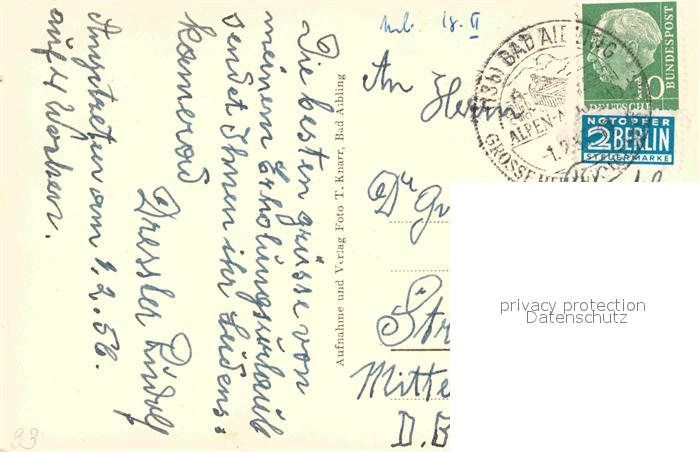 Die besten Grüsse von
meinem Erholungsurlaub
sendet Ihnen ihr Leidens=
kamerad
Dressler Rudolf
Angetreten am 1.2.56.
auf 4 Wochen.
Aufnahme und Verlag Foto T. Knarr, Bad Aibling
18. II
An Herrn
Dr
Str
Mitte
D. B
(13b) BAD AIBLING
ALPEN-
GROSSE HE
DEUTSCHE
BUNDESPOST
NOTOPFER
2 BERLIN
STEUERMARKE
privacy protection
Datenschutz
33